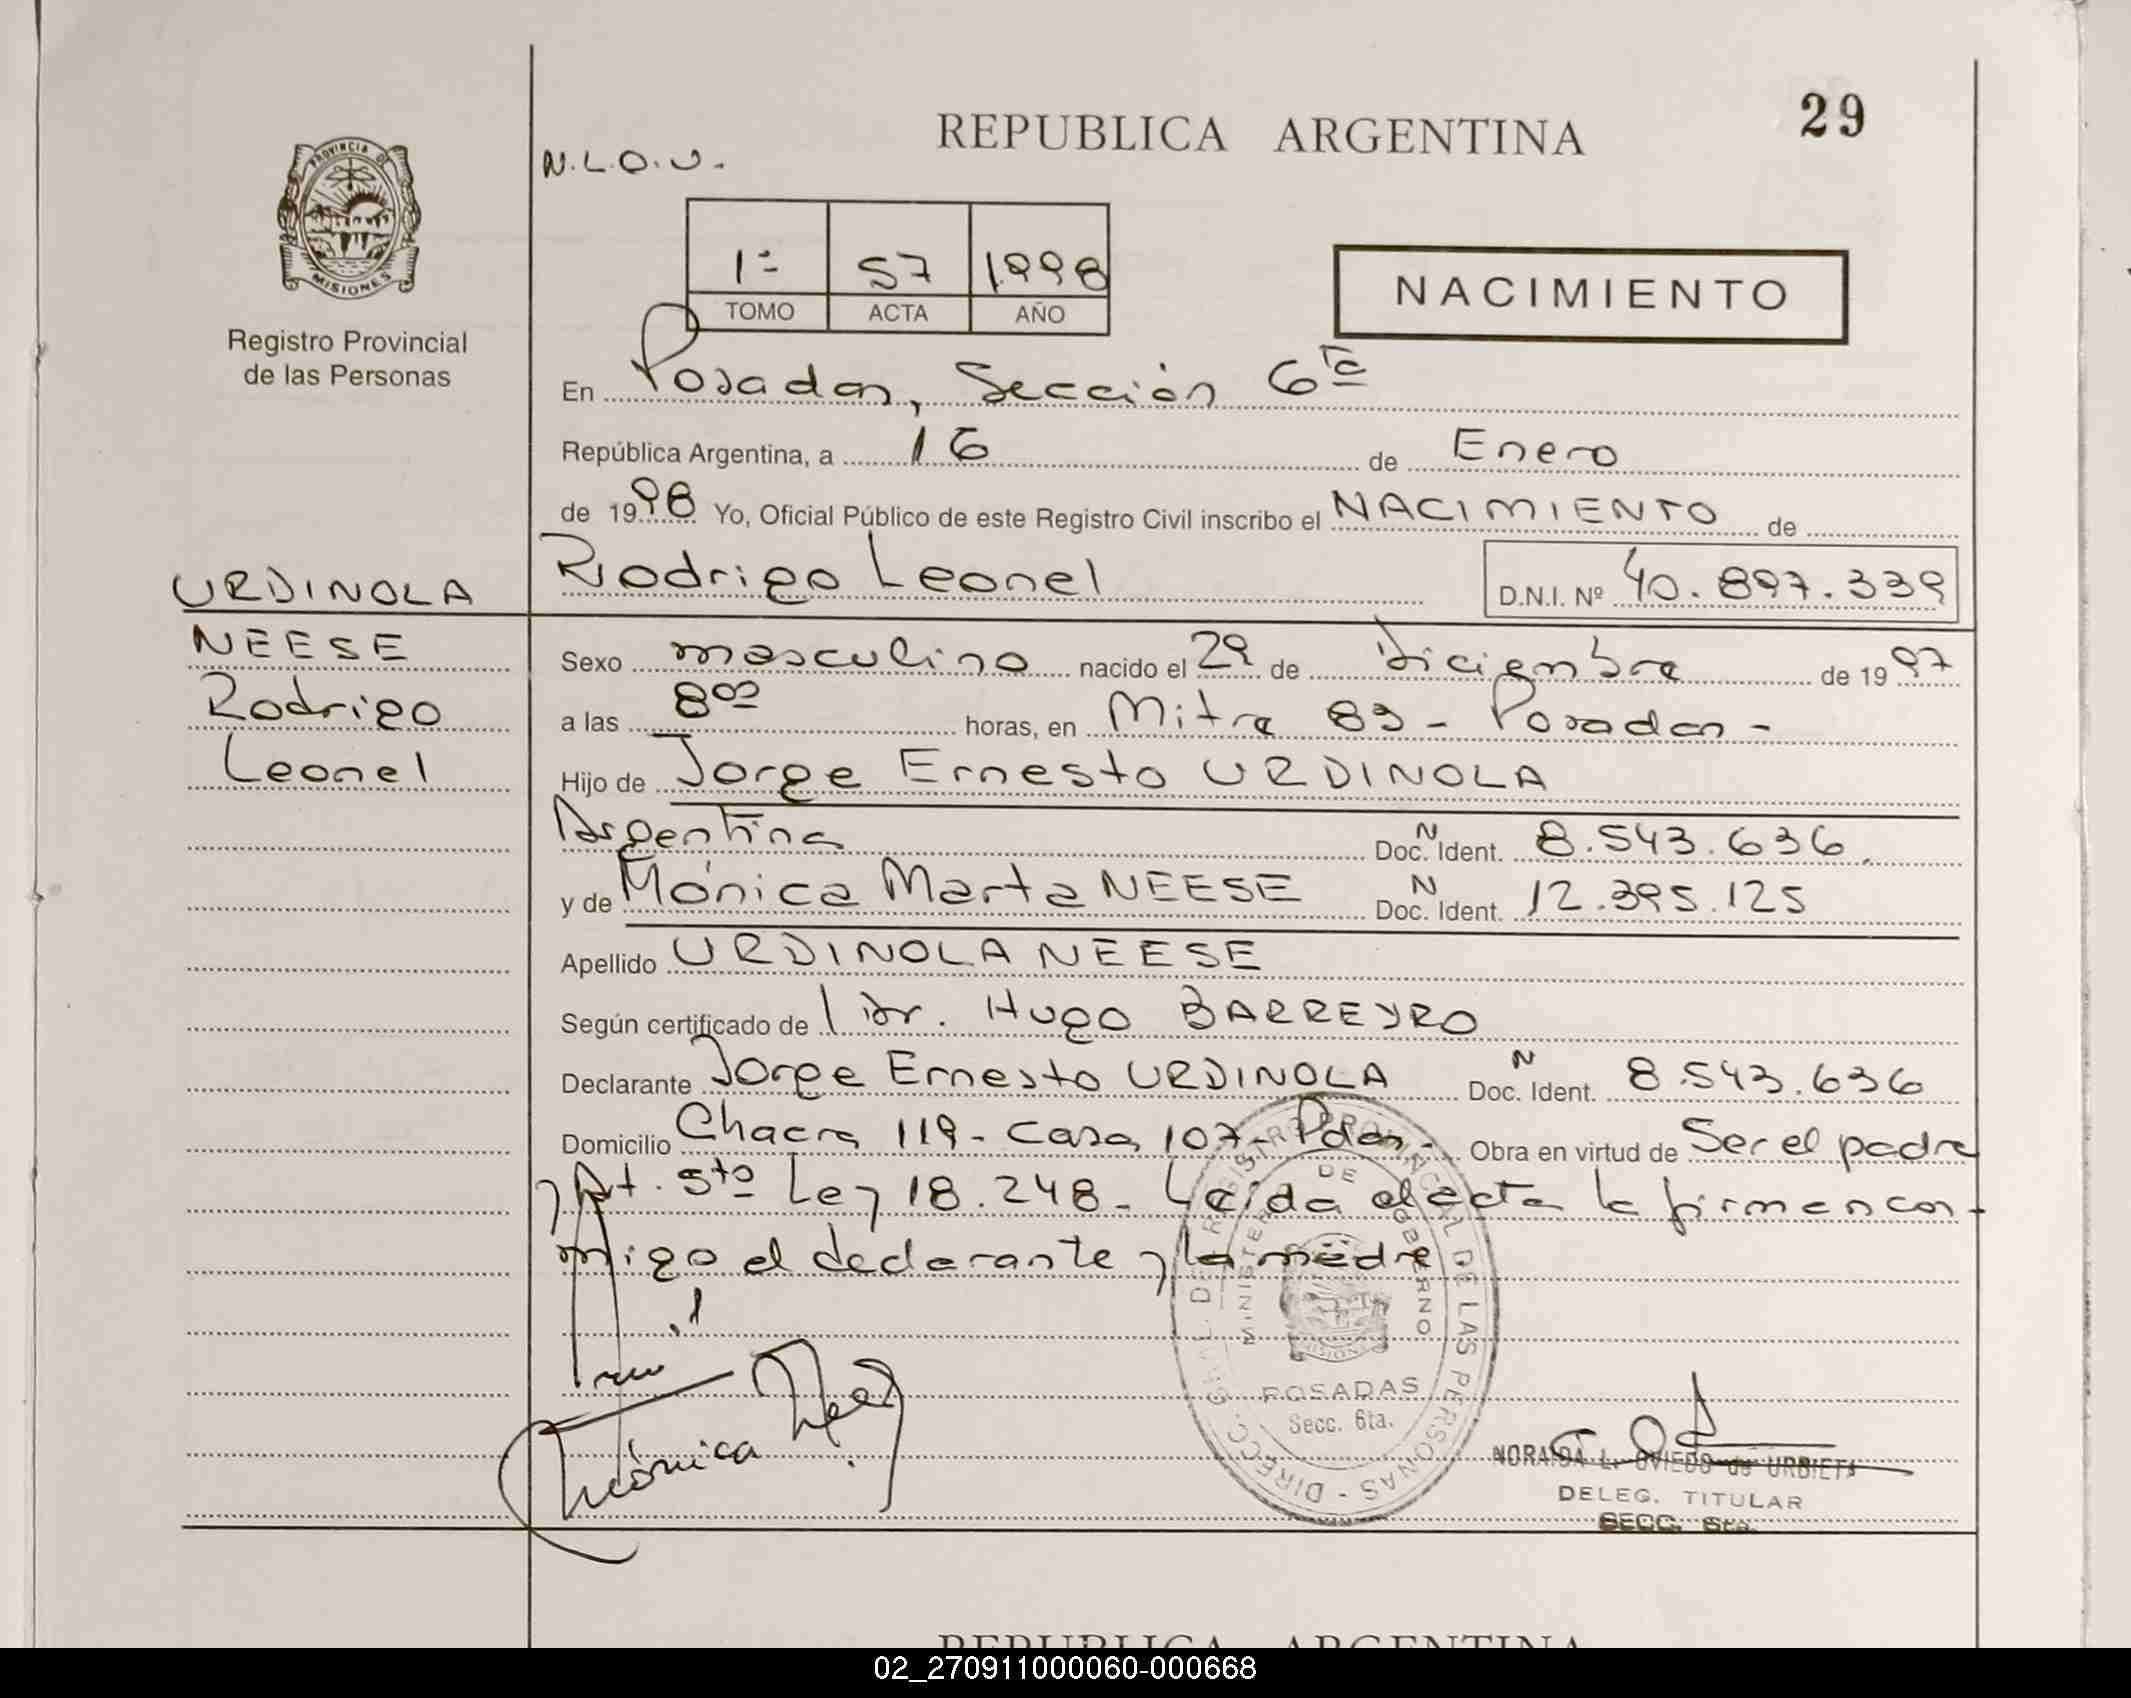 REPUBLICA ARGENTINA
29
PROVINCIA DE
MISIONES
Registro Provincial
de las Personas
N.L.O.U.
1º 57 1.998
TOMO ACTA AÑO
NACIMIENTO
En Posadas, Sección 6ta
República Argentina, a 16 de Enero
de 1998 Yo, Oficial Público de este Registro Civil inscribo el NACIMIENTO de
Rodrigo Leonel D.N.I. Nº 40.897.339
URDINOLA
NEESE
Rodrigo
Leonel
Sexo masculino nacido el 29 de Diciembre de 1997
a las 8 00 horas, en Mitra 89 - Posadas -
Hijo de Jorge Ernesto URDINOLA
Argentina Doc. N Ident. 8.543.636
y de Mónica Marta NEESE Doc. N Ident. 12.395.125
Apellido URDINOLA NEESE
Según certificado de l Dr. Hugo BARREYRO
Declarante Jorge Ernesto URDINOLA Doc. N Ident. 8.543.636
Domicilio Chacra 119 - Casa 107 - Pdas - Obra en virtud de Ser el padre
y Art. 5to Ley 18.248 - Leída el acta la firman con-
migo el declarante y la madre
Mónica
DIRECC. GRAL. DEL REGISTRO PROVINCIAL DE LAS PERSONAS
MINISTERIO DE GOBIERNO
MISIONES
POSADAS
Secc. 6ta.
NORAIDA L. OVIEDO de URBIETA
DELEG. TITULAR
SECC. 6ta.
REPUBLICA ARGENTINA
02_270911000060-000668